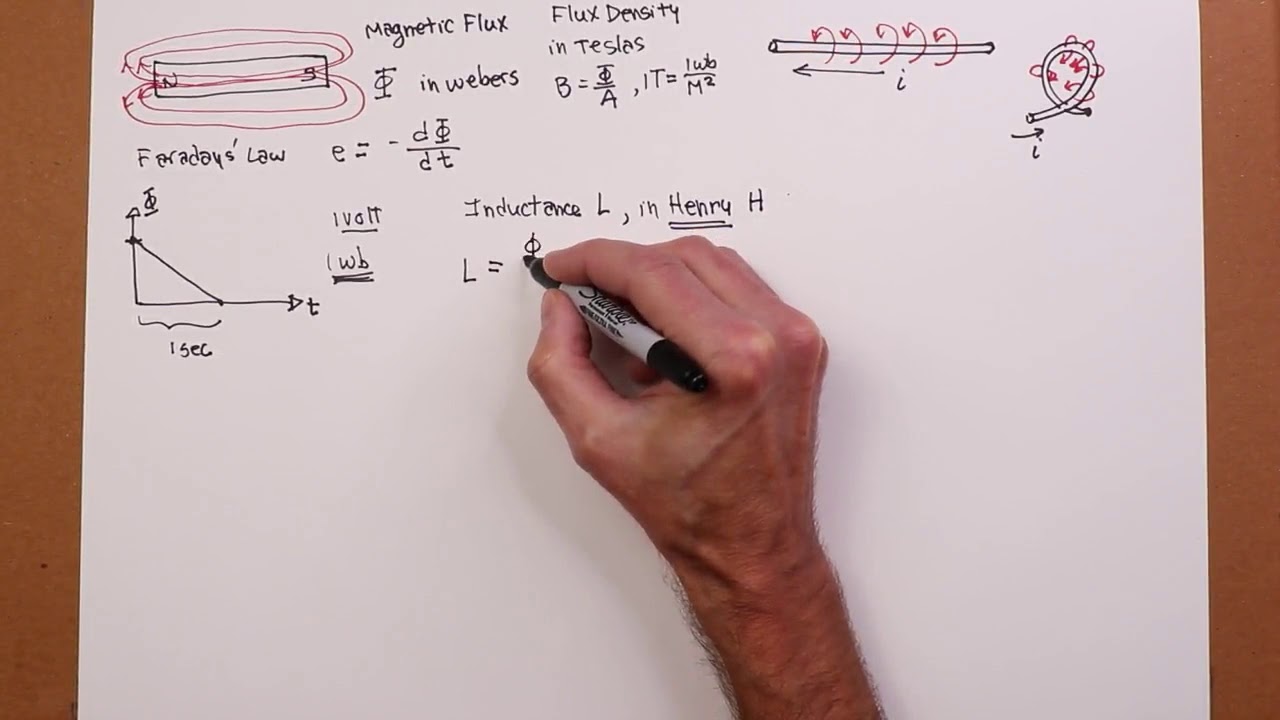 Magnetic Flux
Φ in webers
Flux Density
in Teslas
B = Φ/A , 1T = 1wb/M²
N S
i
i
Faradays' Law e = - dΦ/dt
Φ
t
1 sec
1 volt
1 wb
Inductance L , in Henry H
L = Φ
Sharpie